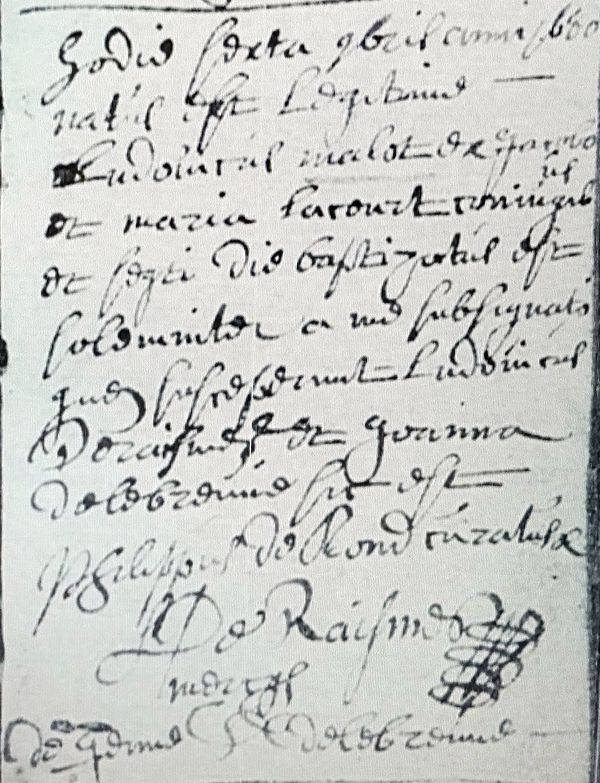 hodie sexta 9bris anni 1680
natus est Legitime
Ludovicus malot ex Jacobo
et maria Lacourt coniugib
us
et septi die baptizatus est
solemniter a me subsignato
quem susceperunt Ludovicus
Deraismes et Joanna
delebrenne sic est
Philippus de Rond curatus
De Raismes
merge
de Jenne delebrenne